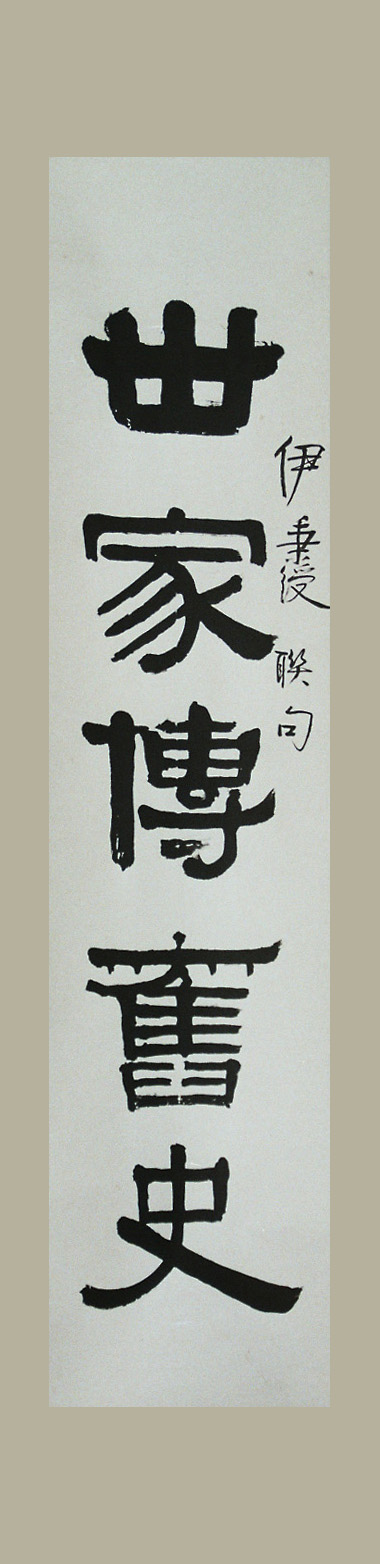 伊秉綬聯句
世家傳舊史